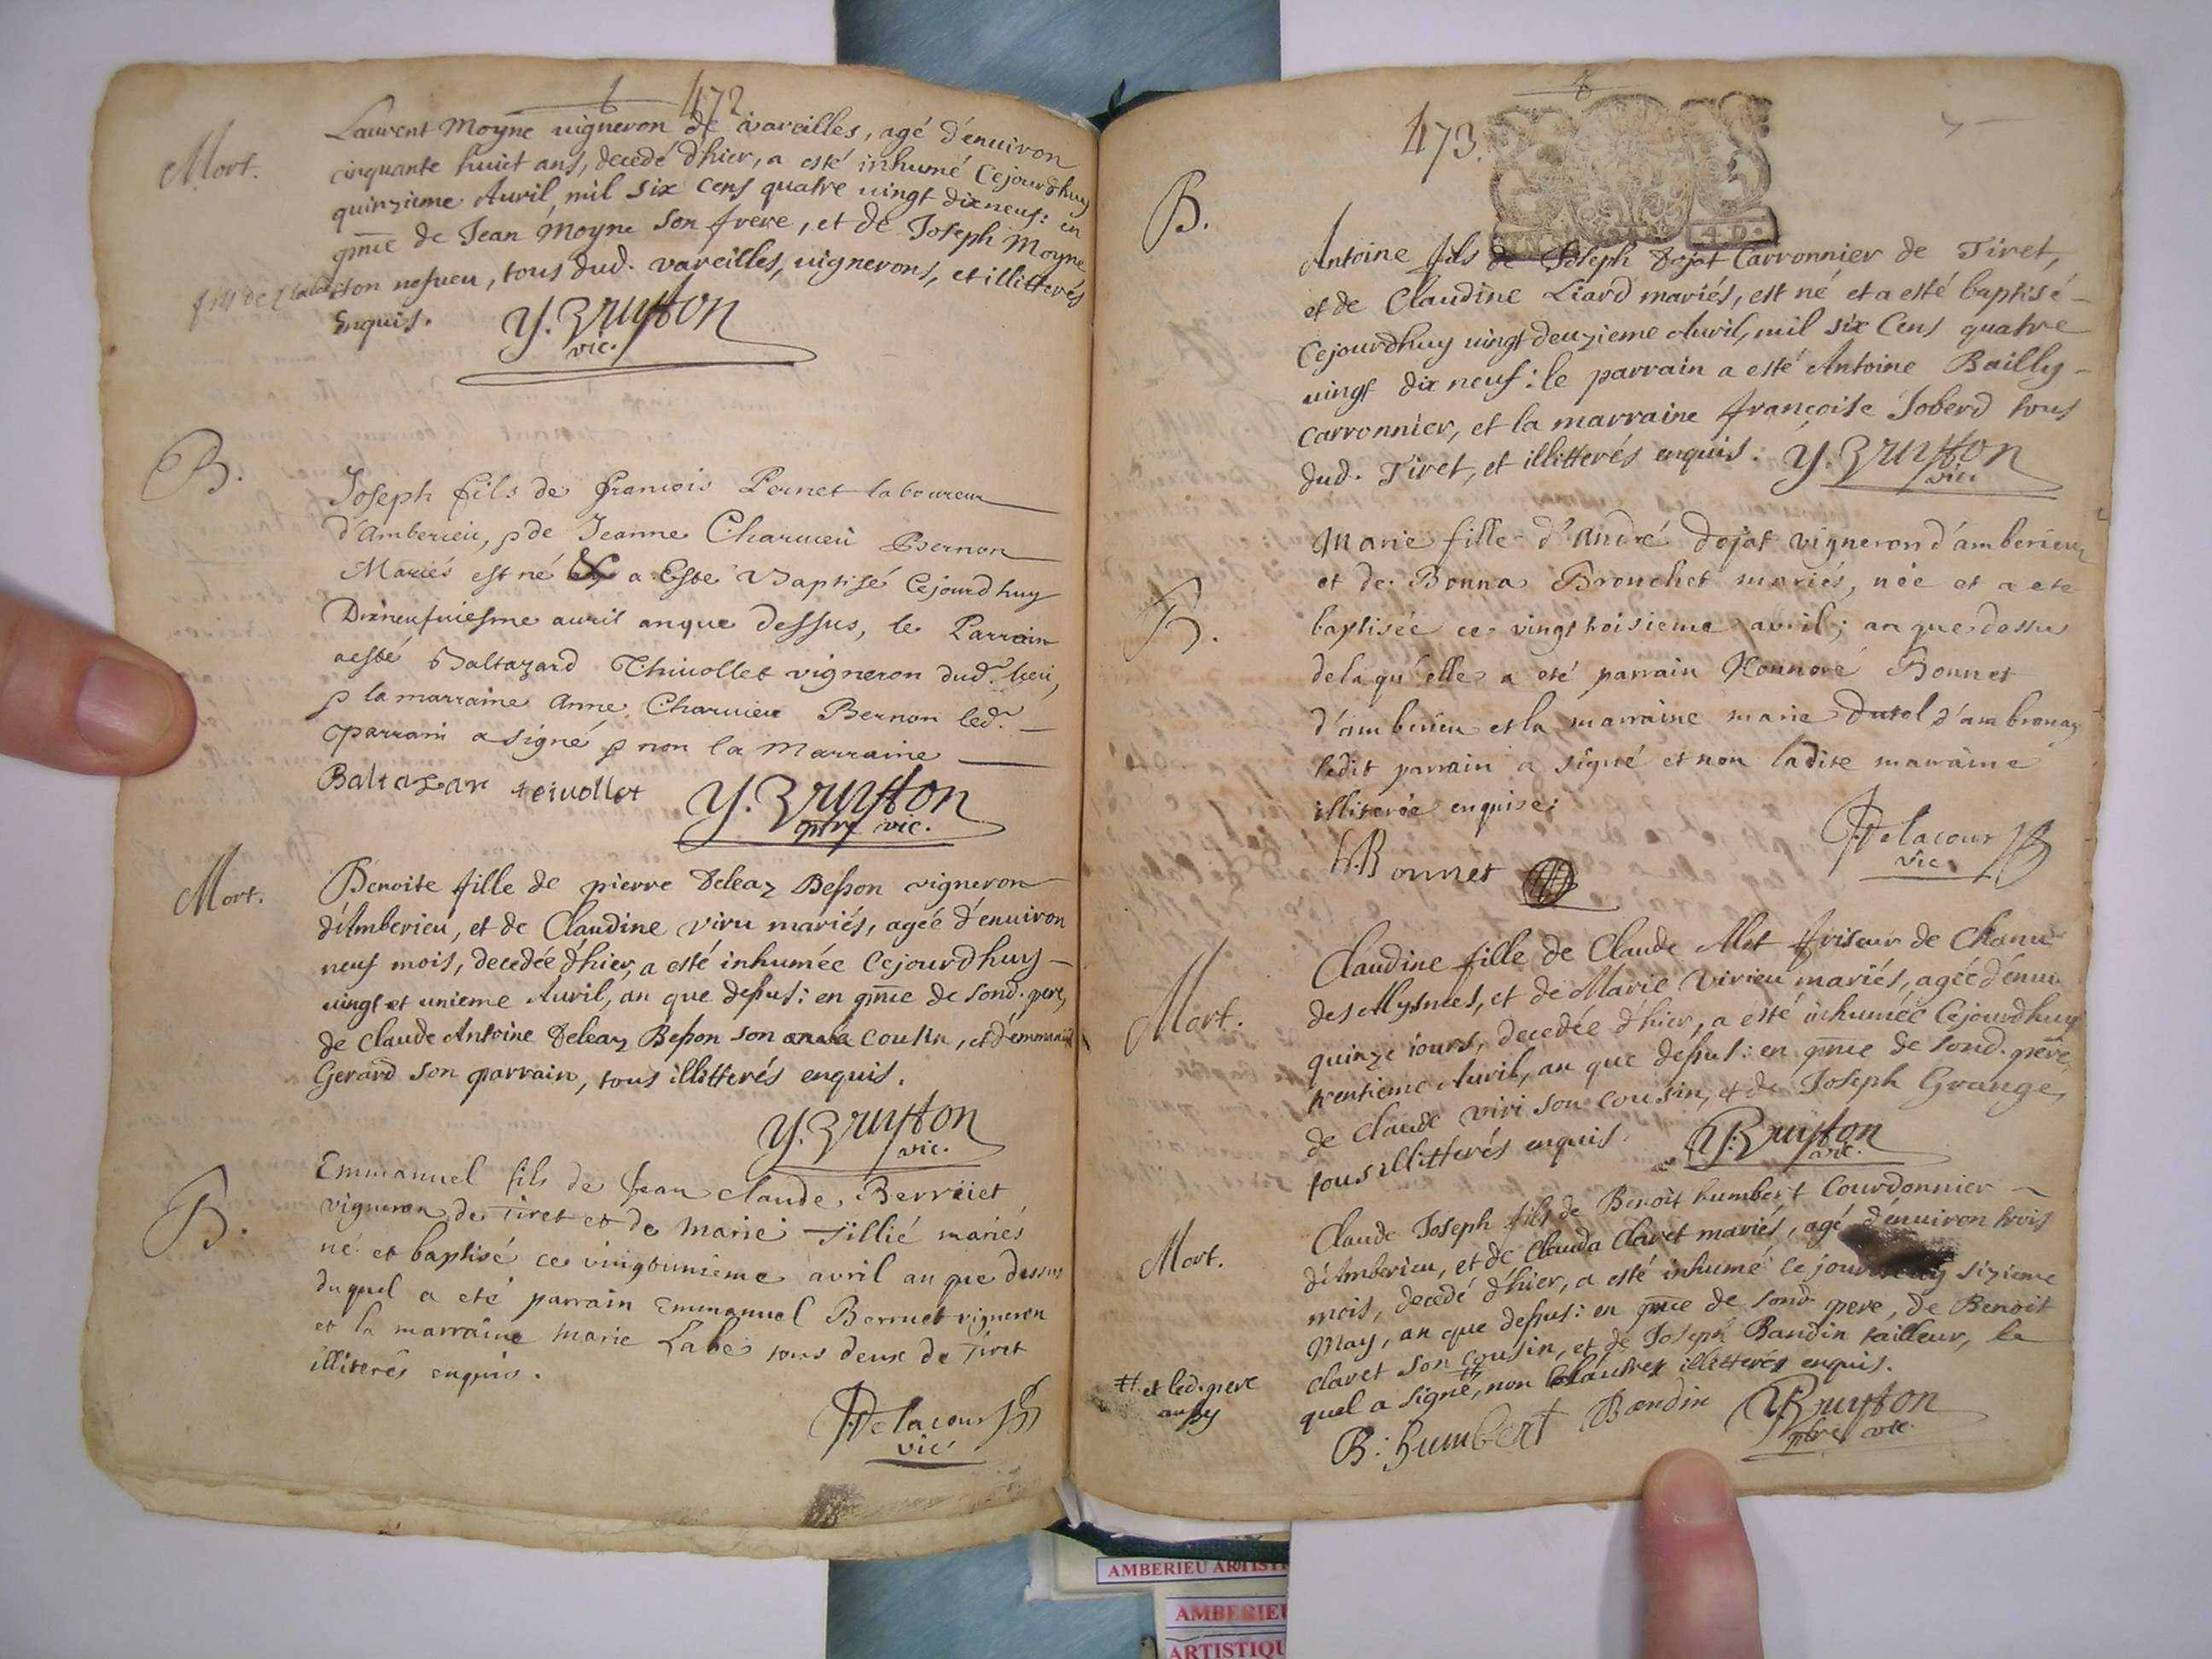 472
Mort.
Laurent Moyne vigneron de vareilles, agé d'enuiron
cinquante huict ans, decedé d'hier, a esté inhumé Cejourd'huy
quinzieme Auril, mil six cens quatre vingt dix neuf: en
pnce de Jean Moyne son frere, et de Joseph Moyne
son nepueu, tous dud. vareilles, vignerons, et illitterés
Enquis.
Y. Bruyston
vic.
B.
Joseph fils de francois Pernet laboureur
d'Amberieu, & de Jeanne Charuieu Bernon
Mariés est né & a Esté Baptisé Cejourd huy
Dixneufuiesme auril an que dessus, le Parrain
a esté Baltazard Thiuollet vigneron dud. lieu,
& la marraine Anne Charuieu Bernon led.
parrain a signé & non la Marraine
Baltazar teivollet
Y. Bruyston
ptre vic.
Mort.
Benoite fille de pierre Deleaz Besson vigneron
d'Amberieu, et de Claudine viru mariés, agée d'enuiron
neuf mois, decedée d'hier, a esté inhumée Cejourdhuy
vingt et unieme Auril, an que dessus: en pnce de sond. pere,
de Claude Antoine Deleaz Besson son cousin, et d'emmanuel
Gerard son parrain, tous illitterés enquis.
Y. Bruyston
vic.
B.
Emmanuel fils de Jean claude Berruiet
vigneron de Tiret et de Marie Tillié mariés
né et baptisé ce vingtunieme avril an que dessus
duquel a eté parrain Emmanuel Berruet vigneron
et la marraine Marie Labe tous deux de Tiret
illiterés enquis.
Delacour
vic
473.
B.
Antoine fils de Joseph Dojat Carronnier de Tiret,
et de Claudine Liard mariés, est né et a esté baptisé
Cejourdhuy vingt deuzieme Auril, mil six Cens quatre
vingt dix neuf: le parrain a esté Antoine Bailly
carronnier, et la marraine françoise Joberd tous
dud. Tiret, et illitterés enquis.
Y. Bruyston
vic.
B.
Marie fille d'André dojat vigneron d'amberieu
et de Bonna Brouchet mariés, née et a ete
baptisée ce vingt troisieme avril; an que dessus
de laqu'elle a eté parrain Honnoré Bonnet
d'amberieu et la marraine marie Dutol d'ambronay
ledit parrain a signé et non ladite marraine
illiterée enquise;
h. Bonnet
Delacour
vic.
Mort.
Claudine fille de Claude friseur de Chanu
des Alysmes, et de Marie Virieu mariés, agée d'enui
quinze iours, decedée d'hier, a esté inhumée Cejourdhuy
trentieme Auril, an que dessus: en pnce de sond. pere,
de Claude viri son cousin, et de Joseph Grange,
tous illitterés enquis.
Y. Bruyston
vic.
Mort.
Claude Joseph fils de Benoit humbert Courdonnier
d'Amberieu, et de Clauda Clavet mariés, agé d'enuiron trois
mois, decedé d'hier, a esté inhumé ce jourdhuy sizieme
May, an que dessus: en pnce de sond. pere, de Benoit
Clavet son cousin, et de Joseph Baudin tailleur, le
quel a signé, # non autres illitterés enquis.
# et led. pere
aussy
B: humbert Baudin
Y. Bruyston
ptre vic.
AMBERIEU ARTISTI
AMBERIEU
ARTISTIQU